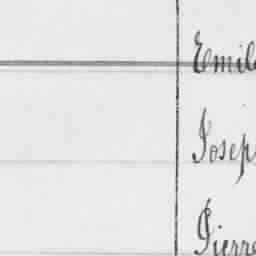 Emile
Josep
Pierre